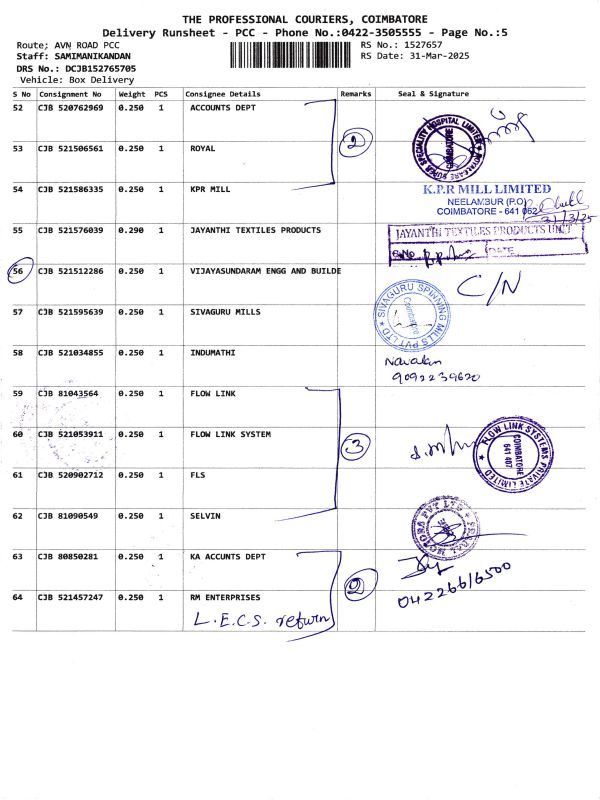 THE PROFESSIONAL COURIERS, COIMBATORE
Delivery Runsheet - PCC - Phone No.:0422-3505555 - Page No.:5
Route; AVN ROAD PCC
RS No.: 1527657
Staff: SAMIMANIKANDAN
RS Date: 31-Mar-2025
DRS No.: DCJB152765705
Vehicle: Box Delivery
S No Consignment No Weight PCS Consignee Details Remarks Seal & Signature
52 CJB 520762969 0.250 1 ACCOUNTS DEPT
2
COIMBATORE
53 CJB 521506561 0.250 1 ROYAL
54 CJB 521586335 0.250 1 KPR MILL
K.P.R MILL LIMITED
NEELAMBUR (P.O)
COIMBATORE - 641 062
31/3/25
55 CJB 521576039 0.290 1 JAYANTHI TEXTILES PRODUCTS
JAYANTHI TEXTILES PRODUCTS UNIT
DATE
56 CJB 521512286 0.250 1 VIJAYASUNDARAM ENGG AND BUILDE
C/N
57 CJB 521595639 0.250 1 SIVAGURU MILLS
SIVAGURU SPINNING MILLS PVT LTD
Coimbatore
58 CJB 521034855 0.250 1 INDUMATHI
9092239620
59 CJB 81043564 0.250 1 FLOW LINK
60 CJB 521053911 0.250 1 FLOW LINK SYSTEM
3
FLOW LINK SYSTEMS PRIVATE LIMITED
COIMBATORE
641 407
61 CJB 520902712 0.250 1 FLS
62 CJB 81090549 0.250 1 SELVIN
63 CJB 80850281 0.250 1 KA ACCUNTS DEPT
2
04226616500
64 CJB 521457247 0.250 1 RM ENTERPRISES
L.E.C.S. return